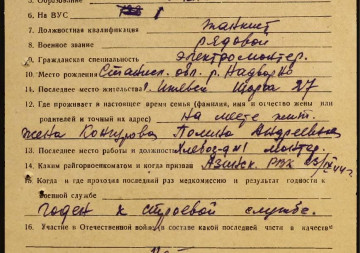 5. Образование
6. На ВУС
7. Должностная квалификация танкист
8. Военное звание рядовой
9. Гражданская специальность электромонтер.
10. Место рождения Станисл. обл. р. Надворно
11. Последнее место жительства г. Ижевск 27
12. Где проживает в настоящее время семья (фамилия, имя и отчество жены или
родителей и точный их адрес) На месте жит.
жена Андреевна
13. Последнее место работы и должность монтер.
14. Каким райгорвоенкоматом и когда призван РВК
15. Когда и где проходил последний раз медкомиссию и результат годности к
военной службе
годен к строевой службе.
16. Участие в Отечественной войне (в составе какой последней части в качестве